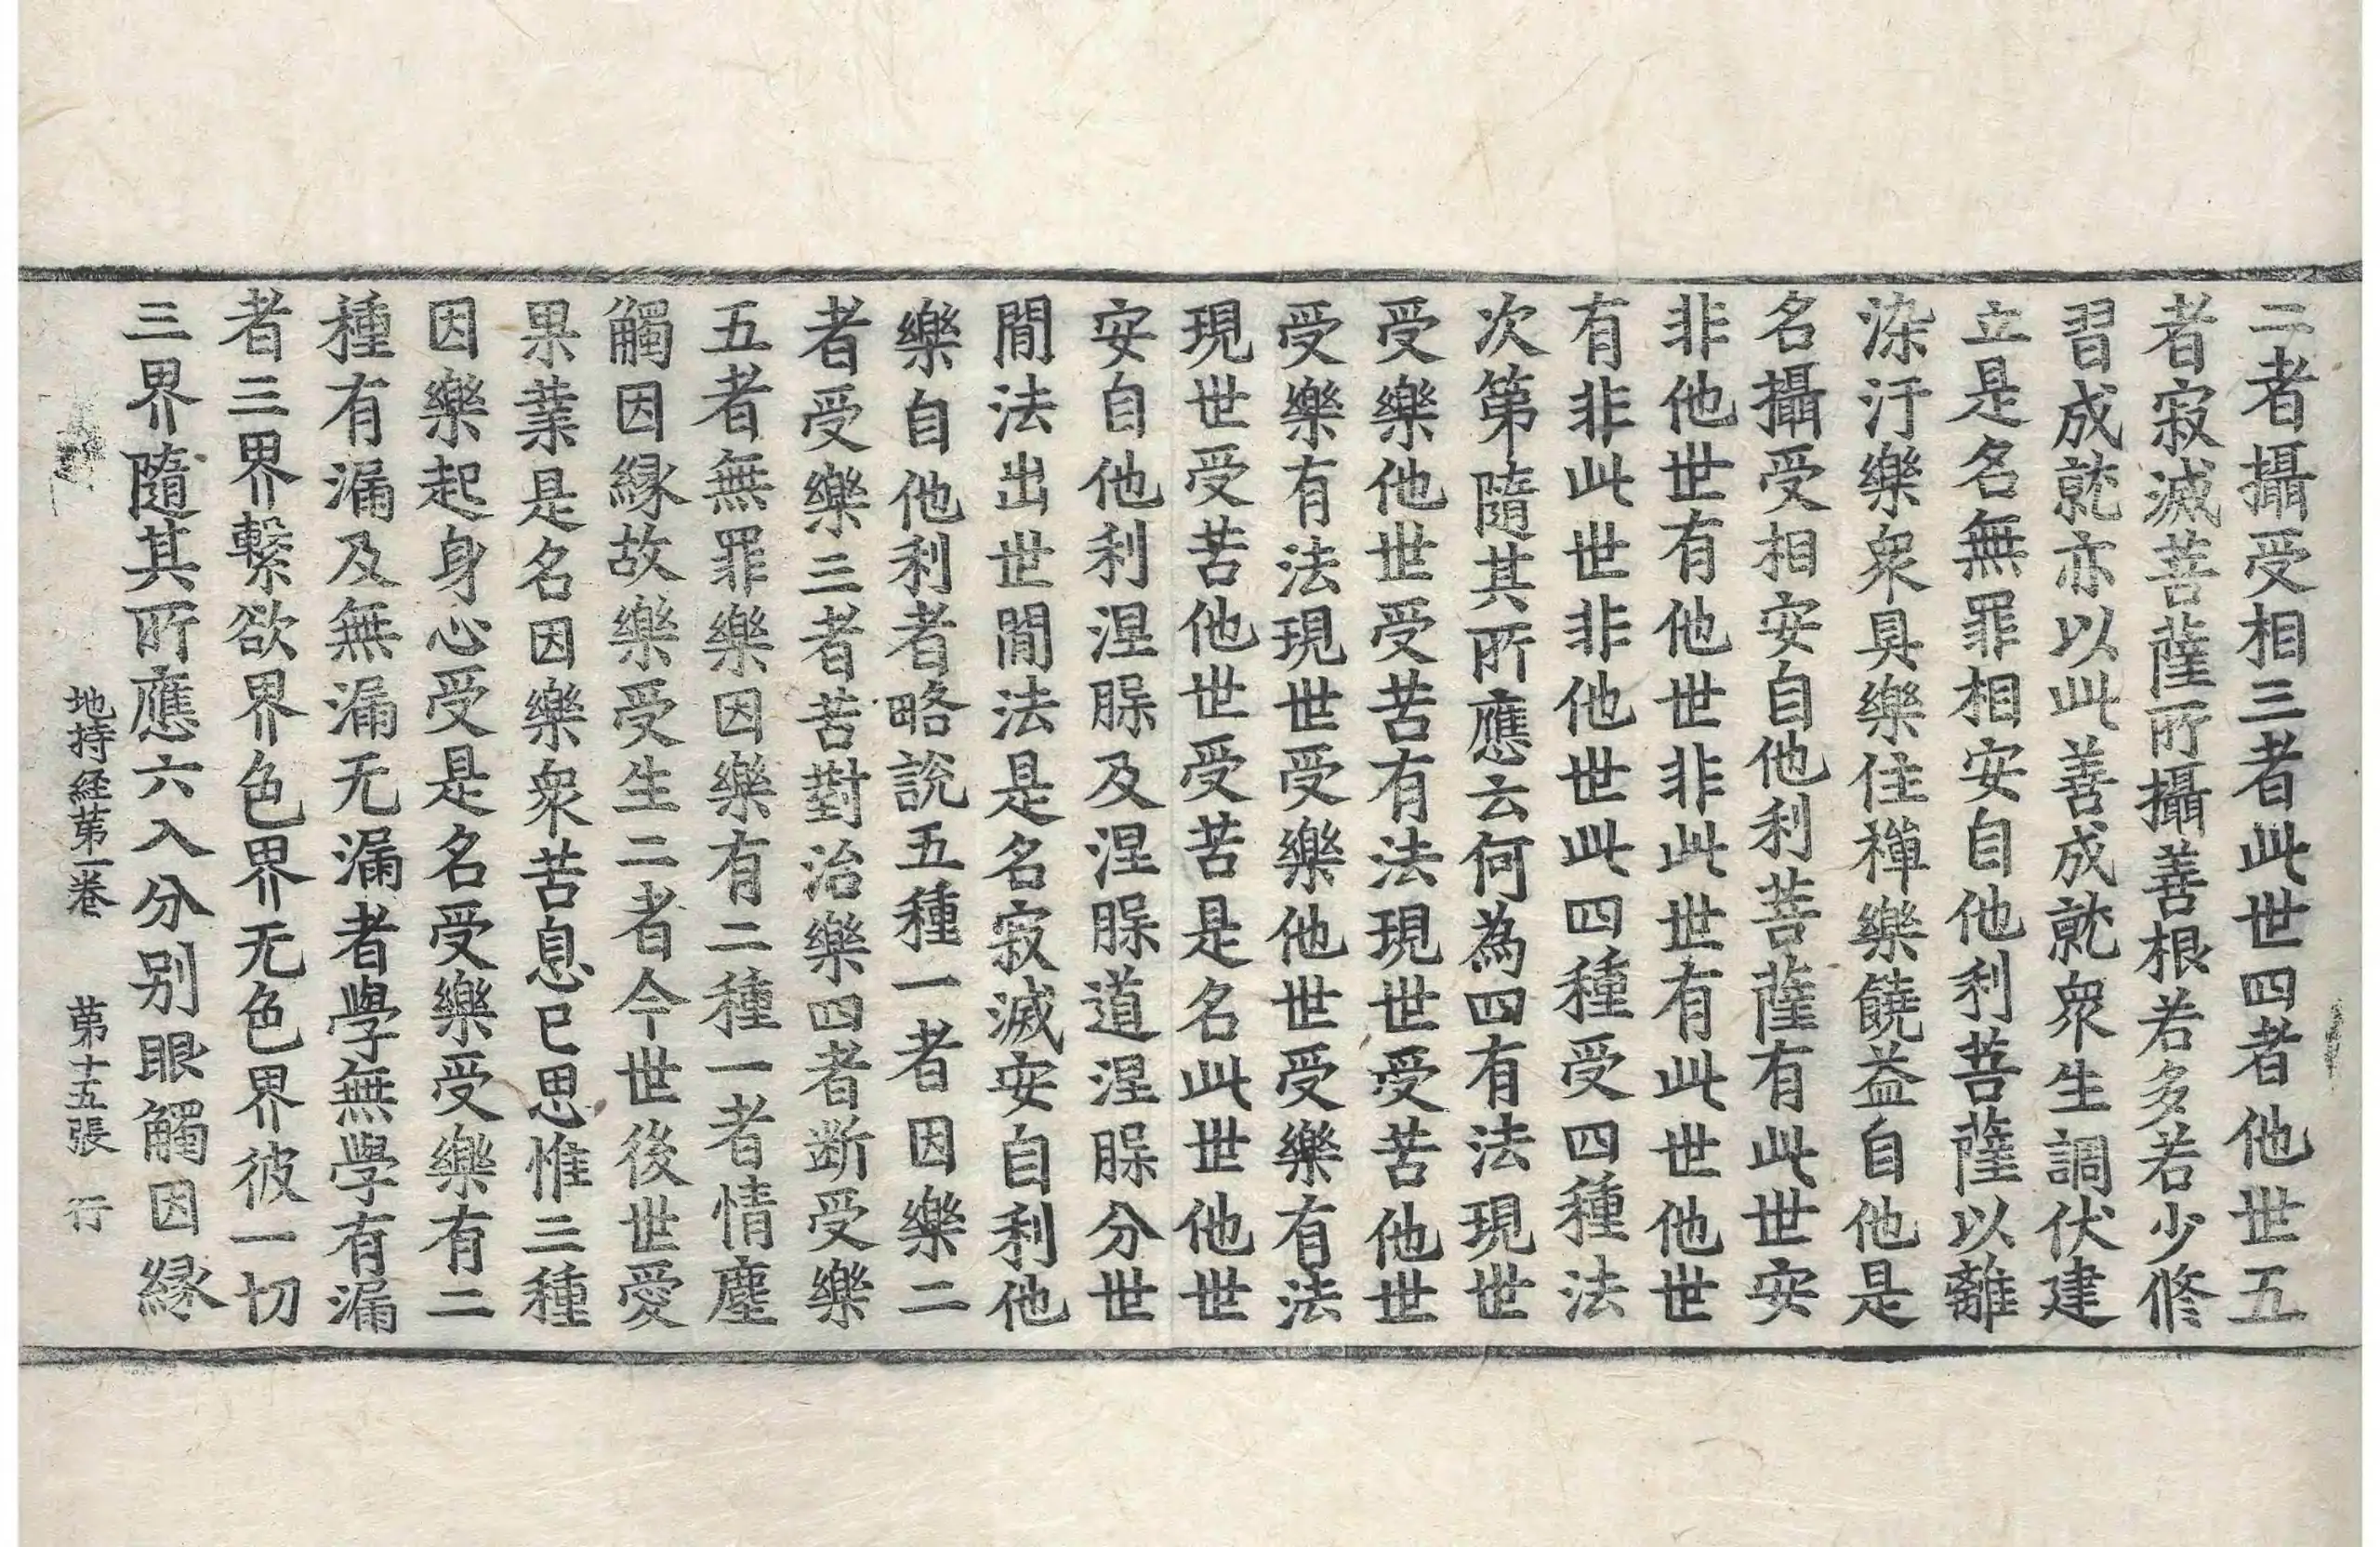 二者攝受相三者此世四者他世五
者寂滅菩薩所攝善根若多若少修
習成就亦以此善成就衆生調伏建
立是名無罪相安自他利菩薩以離
染汙樂衆具樂住禪樂饒益自他是
名攝受相安自他利菩薩有此世安
非他世有他世非此世有此世他世
有非此世非他世此四種受四種法
次第隨其所應云何為四有法現世
受樂他世受苦有法現世受苦他世
受樂有法現世受樂他世受樂有法
現世受苦他世受苦是名此世他世
安自他利涅槃及涅槃道涅槃分世
間法出世間法是名寂滅安自利他
樂自他利者略說五種一者因樂二
者受樂三者苦對治樂四者断受樂
五者無罪樂因樂有二種一者情塵
觸因縁故樂受生二者今世後世愛
果業是名因樂衆苦息已思惟三種
因樂起身心受是名受樂受樂有二
種有漏及無漏无漏者學無學有漏
者三界繫欲界色界无色界彼一切
三界隨其所應六入分别眼觸因縁
地持経苐一卷 苐十五張 行